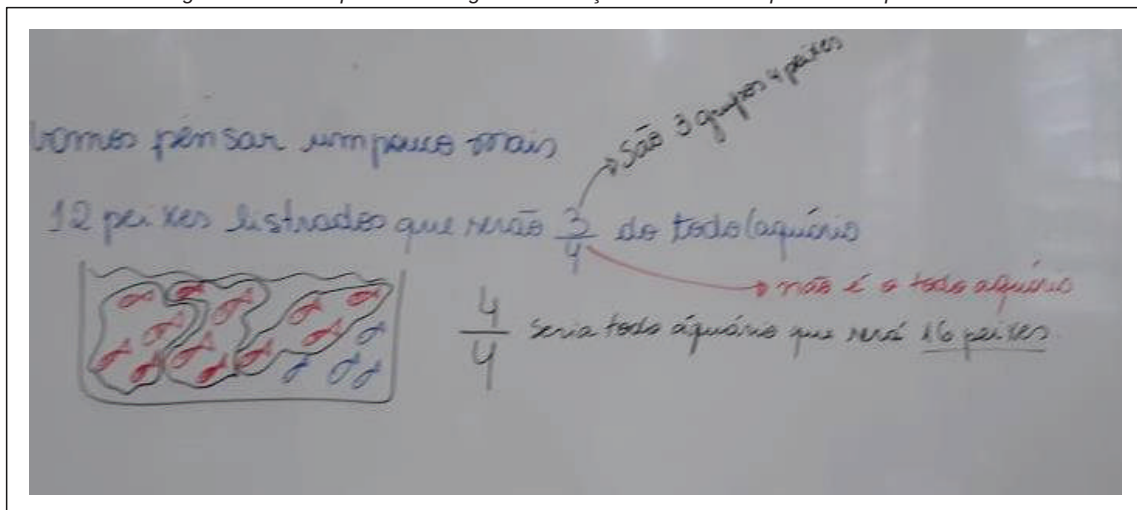 Vamos pensar um pouco mais
São 3 grupos 4 peixes
12 peixes listrados que serão 3/4 do todo (aquário
não é o todo aquário
4/4 seria todo aquário que será 16 peixes.